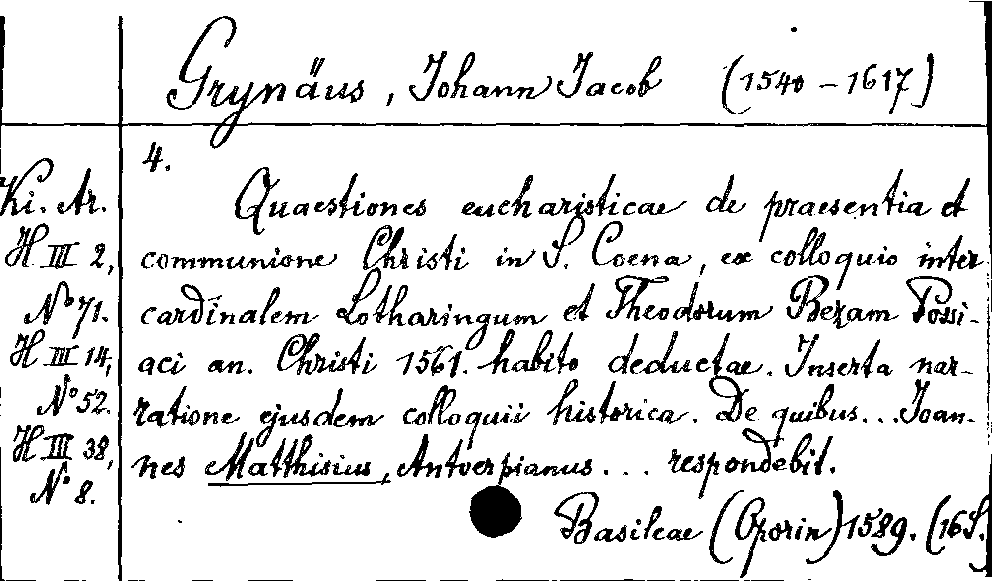 Grynäus, Johann Jacob (1540 – 1617)
4.
Ki. Ar.
H III 2,
No 71.
H III 14,
No 52.
H III 38,
No 8.
Quaestiones eucharisticae de praesentia et
communione Christi in S. Coena, ex colloquio inter
cardinalem Lotharingum et Theodorum Bezam Possi-
aci an. Christi 1561. habito deductae. Inserta nar-
ratione ejusdem colloquii historica. De quibus... Joan-
nes Matthisius, Antverpianus... respondebit.
Basileae (Oporin) 1589. (16 S.